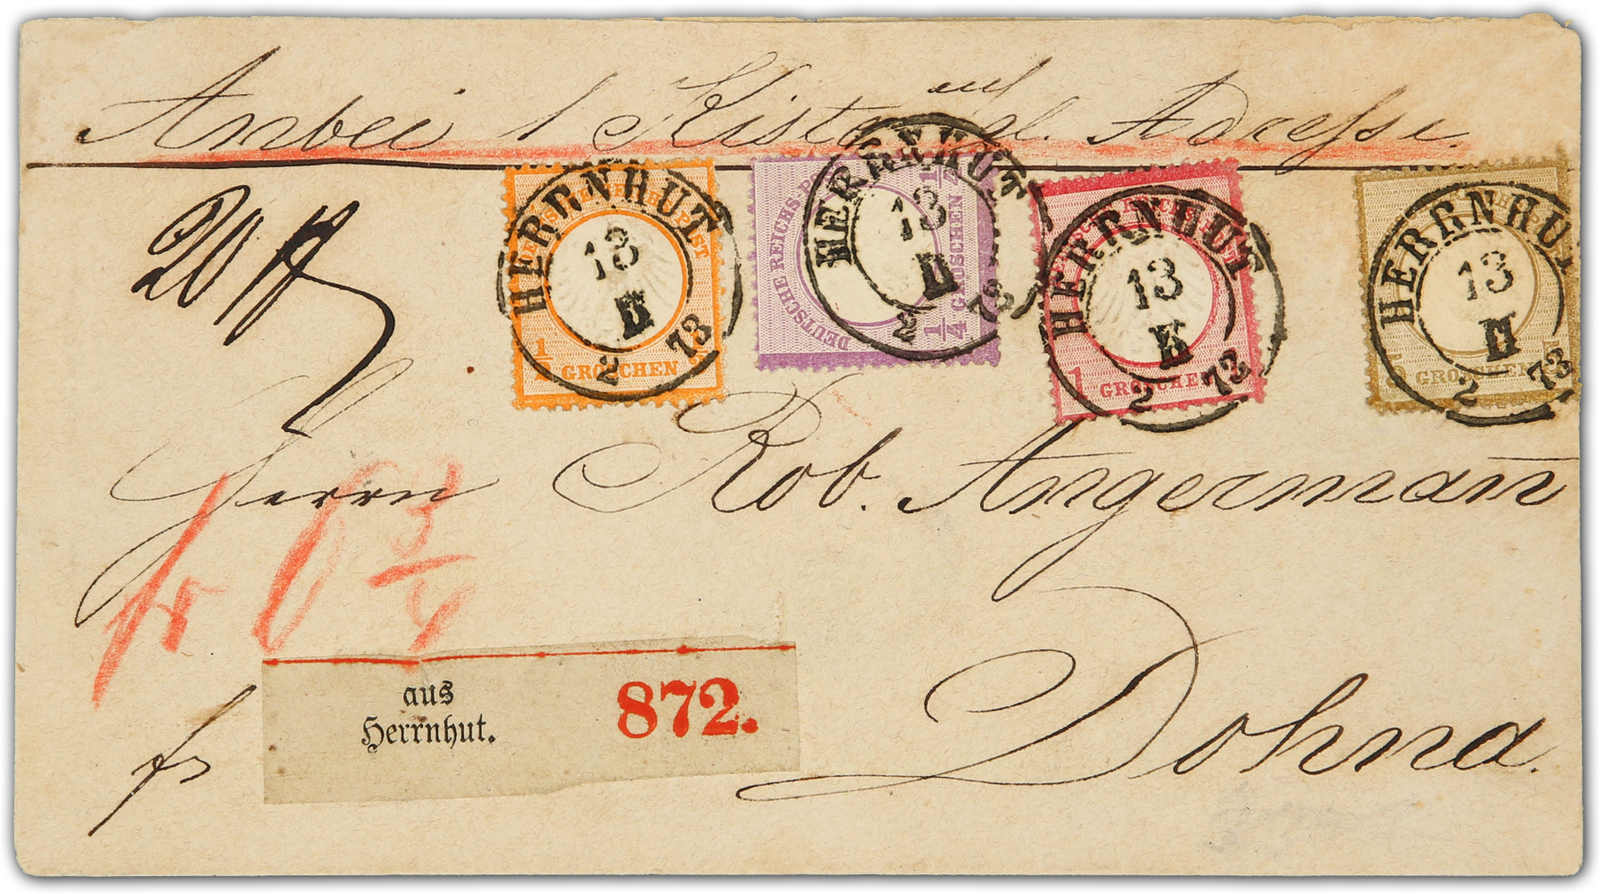 Anbei 1 Kiste mit gl. Adresse.
20 ℔
HERRNHUT
13
II
2 73
1/2 GROSCHEN
DEUTSCHE REICHS-P
1/4 GROSCHEN
HERRNHUT
13
II
2 73
1 GROSCHEN
HERRNHUT
13
II
2 73
GROSCHEN
HERRNHUT
13
II
2 73
Herrn Rob. Angermañ
fr 6 3/4
aus
Herrnhut.
872.
fr
Dohna.